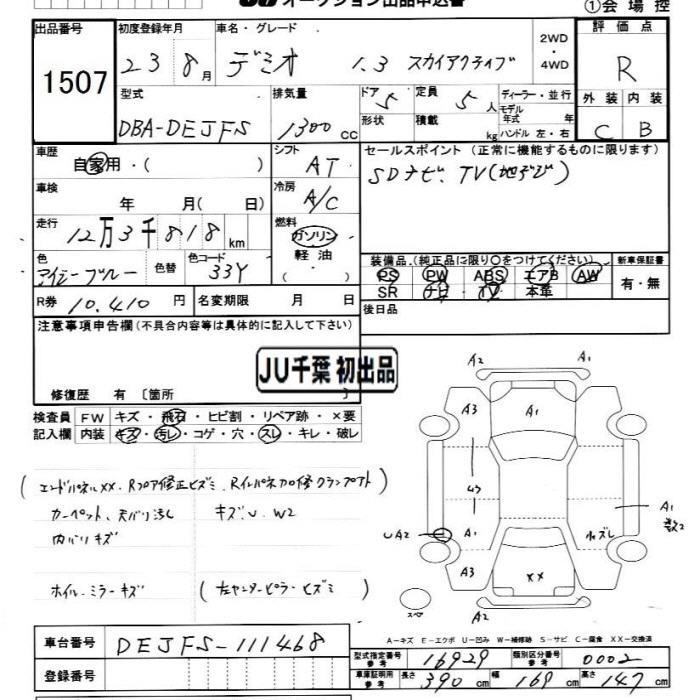 オークション出品申込書
①会場控
出品番号
1507
初度登録年月
23 8月
車名・グレード
デミオ 1.3 スカイアクティブ
2WD・4WD
評価点
R
外装 内装
C B
型式
DBA-DEJFS
排気量
1300 cc
ドア 5
形状
定員 5人
積載 kg
ディーラー・並行
モデル年式 年
ハンドル 左・右
車歴
自家用・( )
シフト
AT
セールスポイント (正常に機能するものに限ります)
SDナビ、TV(地デジ)
車検
年 月( 日)
冷房
A/C
走行
12万3千818km
燃料
ガソリン
軽油
( )
色
アイシーブルー
色替
色コード
33Y
装備品.(純正品に限り○をつけてください)
PS PW ABS エアB AW
SR ナビ TV 本革
新車保証書
有・無
R券 10,410円
名変期限 月 日
後日品
注意事項申告欄(不具合内容等は具体的に記入して下さい)
JU千葉 初出品
修復歴 有 〔箇所 〕
検査員 FW キズ・飛石・ヒビ割・リペア跡・×要
記入欄 内装 キズ・汚レ・コゲ・穴・スレ・キレ・破レ
(エンドパネルXX、Rフロア修正ヒズミ、Rインパネ加修クランプアト)
カーペット、天バリ汚レ キズ、U、W2
内バリキズ
ホイル、ミラーキズ (左センターピラーヒズミ)
A2 A1
A3 A1
A1
UA2 A1
A3 XX
スペ A2
A-キズ E-エクボ U-凹み W-補修跡 S-サビ C-腐食 XX-交換済
車台番号 DEJFS-111468
登録番号
型式指定番号 参考 16929
類別区分番号 参考 0002
車庫証明用 参考 長さ 390cm 幅 169cm 高さ 147cm